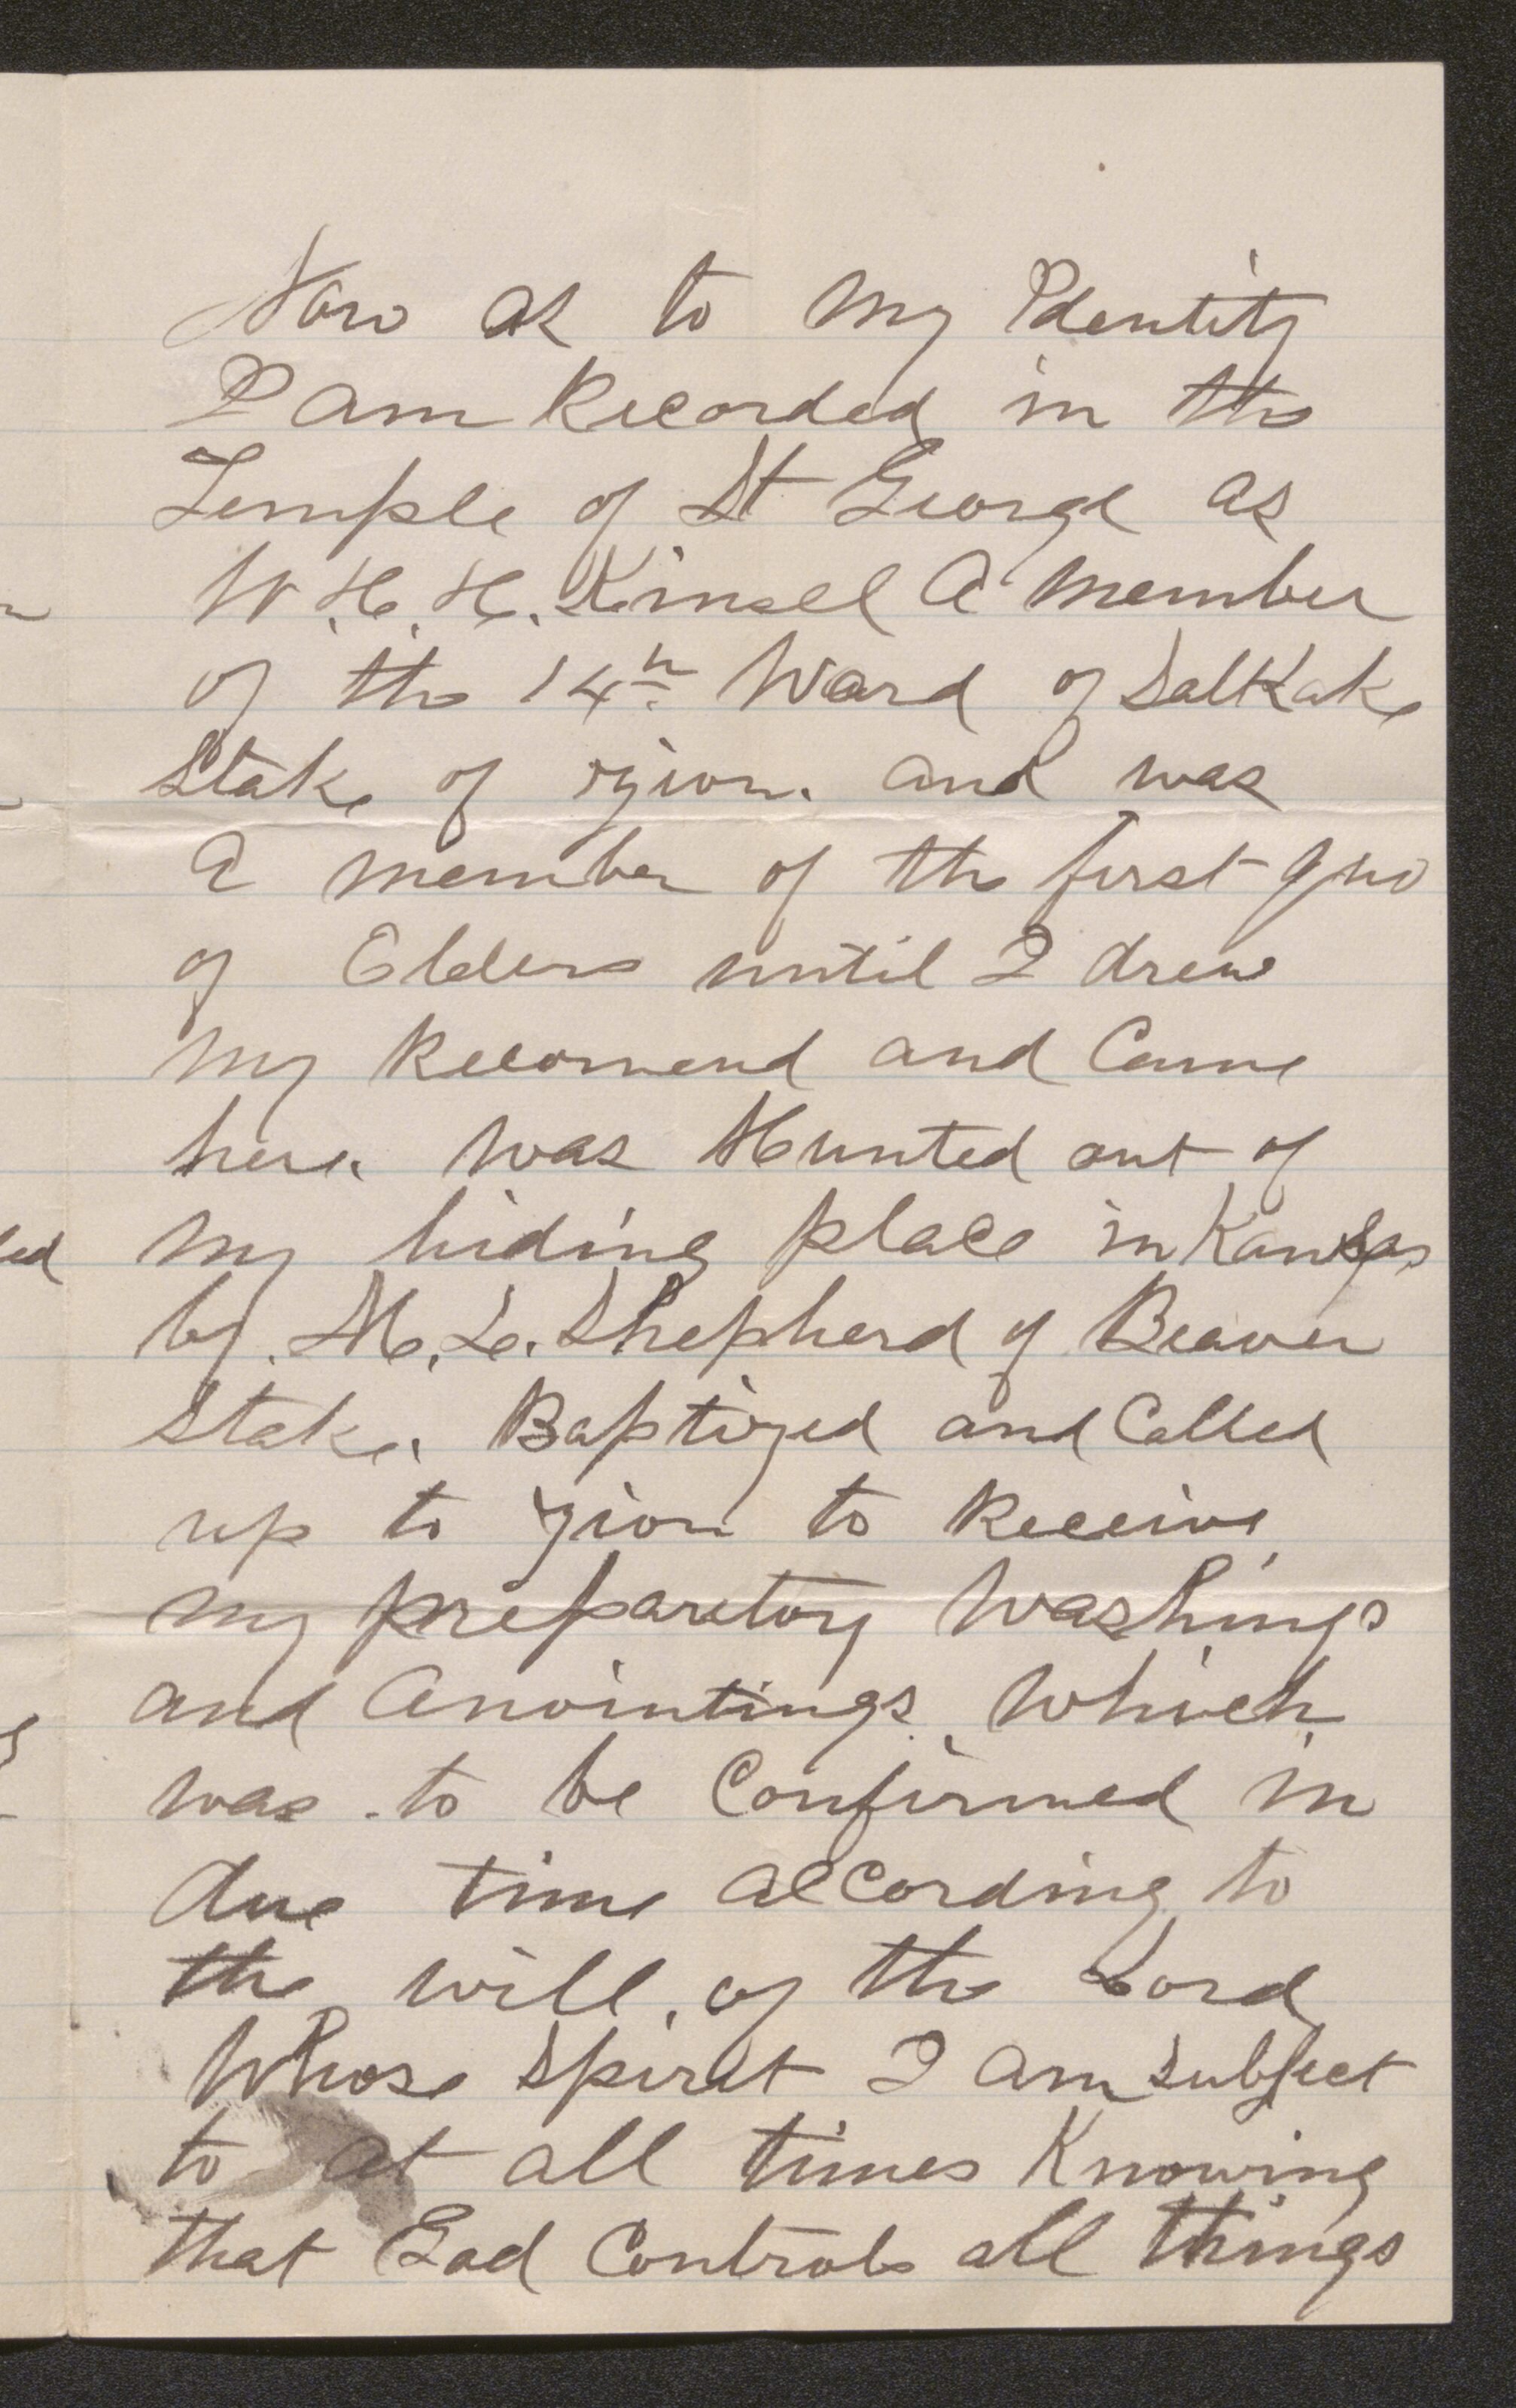 Now as to my Identity
I am Recorded in the
Temple of St George as
W. H. H. Kinsel A member
of the 14th Ward of Salt Lake
Stake of zion. and was
A member of the first quo
of Elders until I drew
my Recomend and Came
here. was Hunted out of
my hiding place in Kansas
by. M. L. Shepherd of Beaver
Stake. Baptized and Called
up to zion to Receive
my preparetory Washings
and Anointings. Which
was to be Confirmed in
due time according to
the will. of the Lord
Whose Spirit I am subject
to at all times Knowing
that God Controls all things
led